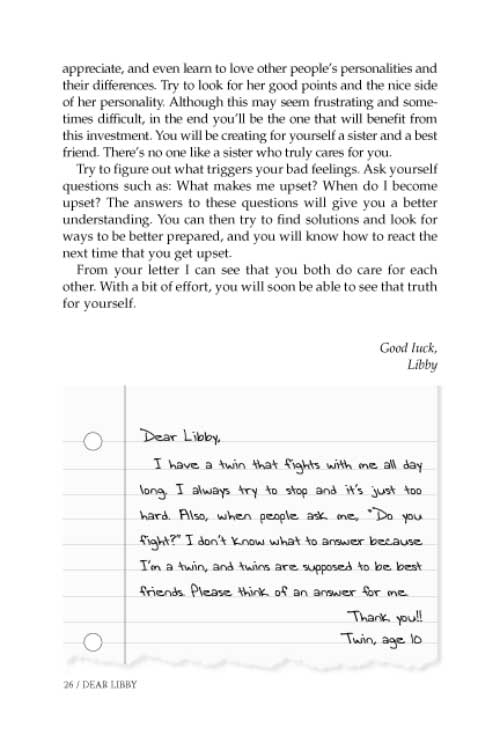 appreciate, and even learn to love other people's personalities and
their differences. Try to look for her good points and the nice side
of her personality. Although this may seem frustrating and some-
times difficult, in the end you'll be the one that will benefit from
this investment. You will be creating for yourself a sister and a best
friend. There's no one like a sister who truly cares for you.
Try to figure out what triggers your bad feelings. Ask yourself
questions such as: What makes me upset? When do I become
upset? The answers to these questions will give you a better
understanding. You can then try to find solutions and look for
ways to be better prepared, and you will know how to react the
next time that you get upset.
From your letter I can see that you both do care for each
other. With a bit of effort, you will soon be able to see that truth
for yourself.
Good luck,
Libby
Dear Libby,
I have a twin that fights with me all day
long. I always try to stop and it's just too
hard. Also, when people ask me, "Do you
fight?" I don't know what to answer because
I'm a twin, and twins are supposed to be best
friends. Please think of an answer for me.
Thank you!!
Twin, age 10
26 / DEAR LIBBY